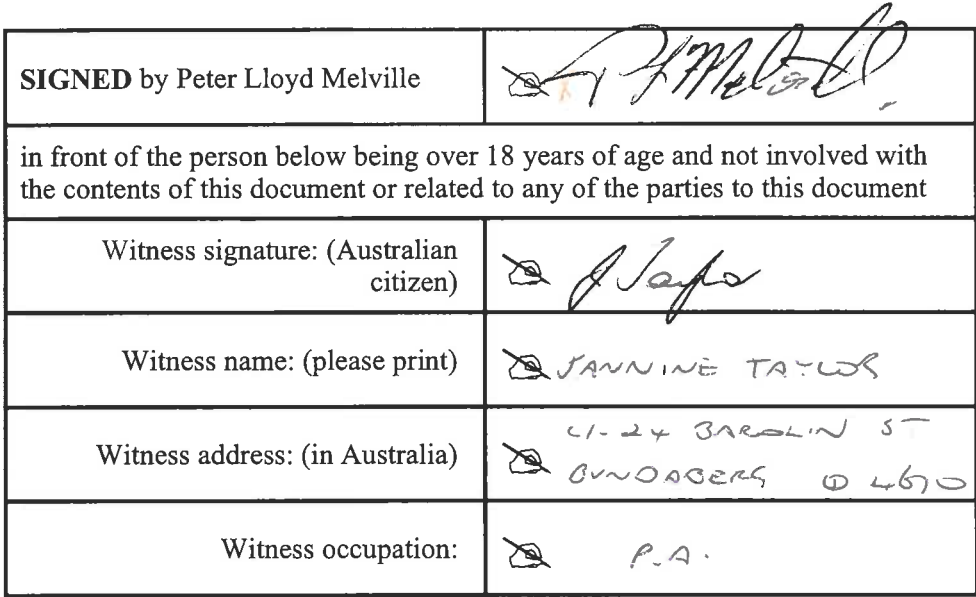 SIGNED by Peter Lloyd Melville
P L Melville
in front of the person below being over 18 years of age and not involved with
the contents of this document or related to any of the parties to this document
Witness signature: (Australian
citizen)
J Taylor
Witness name: (please print)
JANNINE TAYLOR
Witness address: (in Australia)
BAROLIN ST
BUNDABERG 4670
Witness occupation:
P.A.